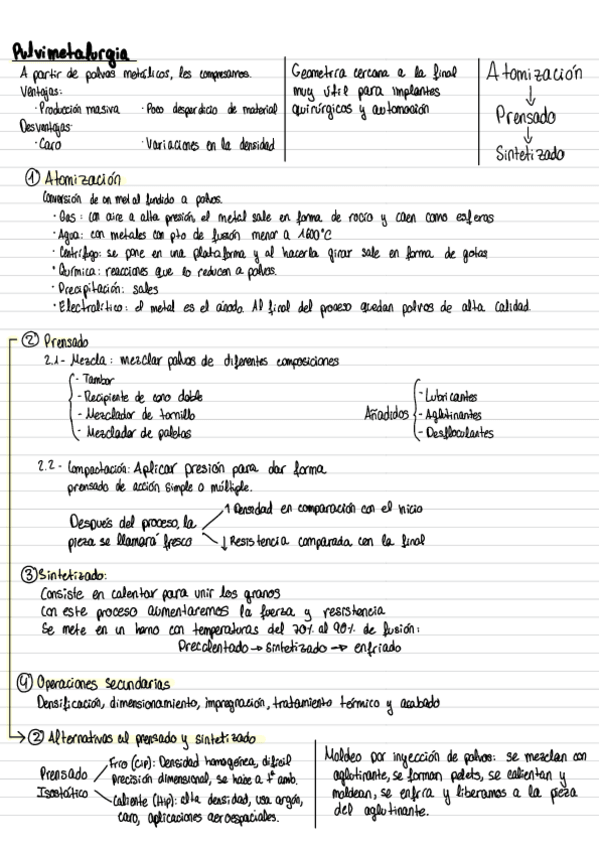 Pulvimetalurgia
A partir de polvos metálicos, les compresamos.
Ventajas:
· Producción masiva · Poco desperdicio de material
Desventajas:
· Caro · Variaciones en la densidad
Geometría cercana a la final
muy útil para implantes
quirúrgicos y automoción
Atomización
↓
Prensado
↓
Sintetizado
① Atomización
Conversión de un metal fundido a polvos.
· Gas: con aire a alta presión, el metal sale en forma de rocío y caen como esferas
· Agua: con metales con pto de fusión menor a 1600°C
· Centrífugo: se pone en una plataforma y al hacerla girar sale en forma de gotas
· Química: reacciones que lo reducen a polvos.
· Precipitación: sales
· Electrolítico: el metal es el ánodo. Al final del proceso quedan polvos de alta calidad.
② Prensado
2.1- Mezcla: mezclar polvos de diferentes composiciones
- Tambor
- Recipiente de cono doble
- Mezclador de tornillo
- Mezclador de paletas
Añadidos
- Lubricantes
- Aglutinantes
- Desfloculantes
2.2- Compactación: Aplicar presión para dar forma
prensado de acción simple o múltiple.
Después del proceso, la
pieza se llamará fresco
↑ Densidad en comparación con el inicio
↓ Resistencia comparada con la final
③ Sintetizado:
Consiste en calentar para unir los granos
Con este proceso aumentaremos la fuerza y resistencia
Se mete en un horno con temperaturas del 70% al 90% de fusión:
Precalentado → sintetizado → enfriado
④ Operaciones secundarias
Densificación, dimensionamiento, impregnación, tratamiento térmico y acabado
② Alternativas al prensado y sintetizado
Prensado
Isostático
Frío (CIP): Densidad homogénea, difícil
precisión dimensional, se hace a tª amb.
Caliente (HIP): alta densidad, usa argón,
caro, aplicaciones aeroespaciales.
Moldeo por inyección de polvos: se mezclan con
aglutinante, se forman pelets, se calientan y
moldean, se enfría y liberamos a la pieza
del aglutinante.